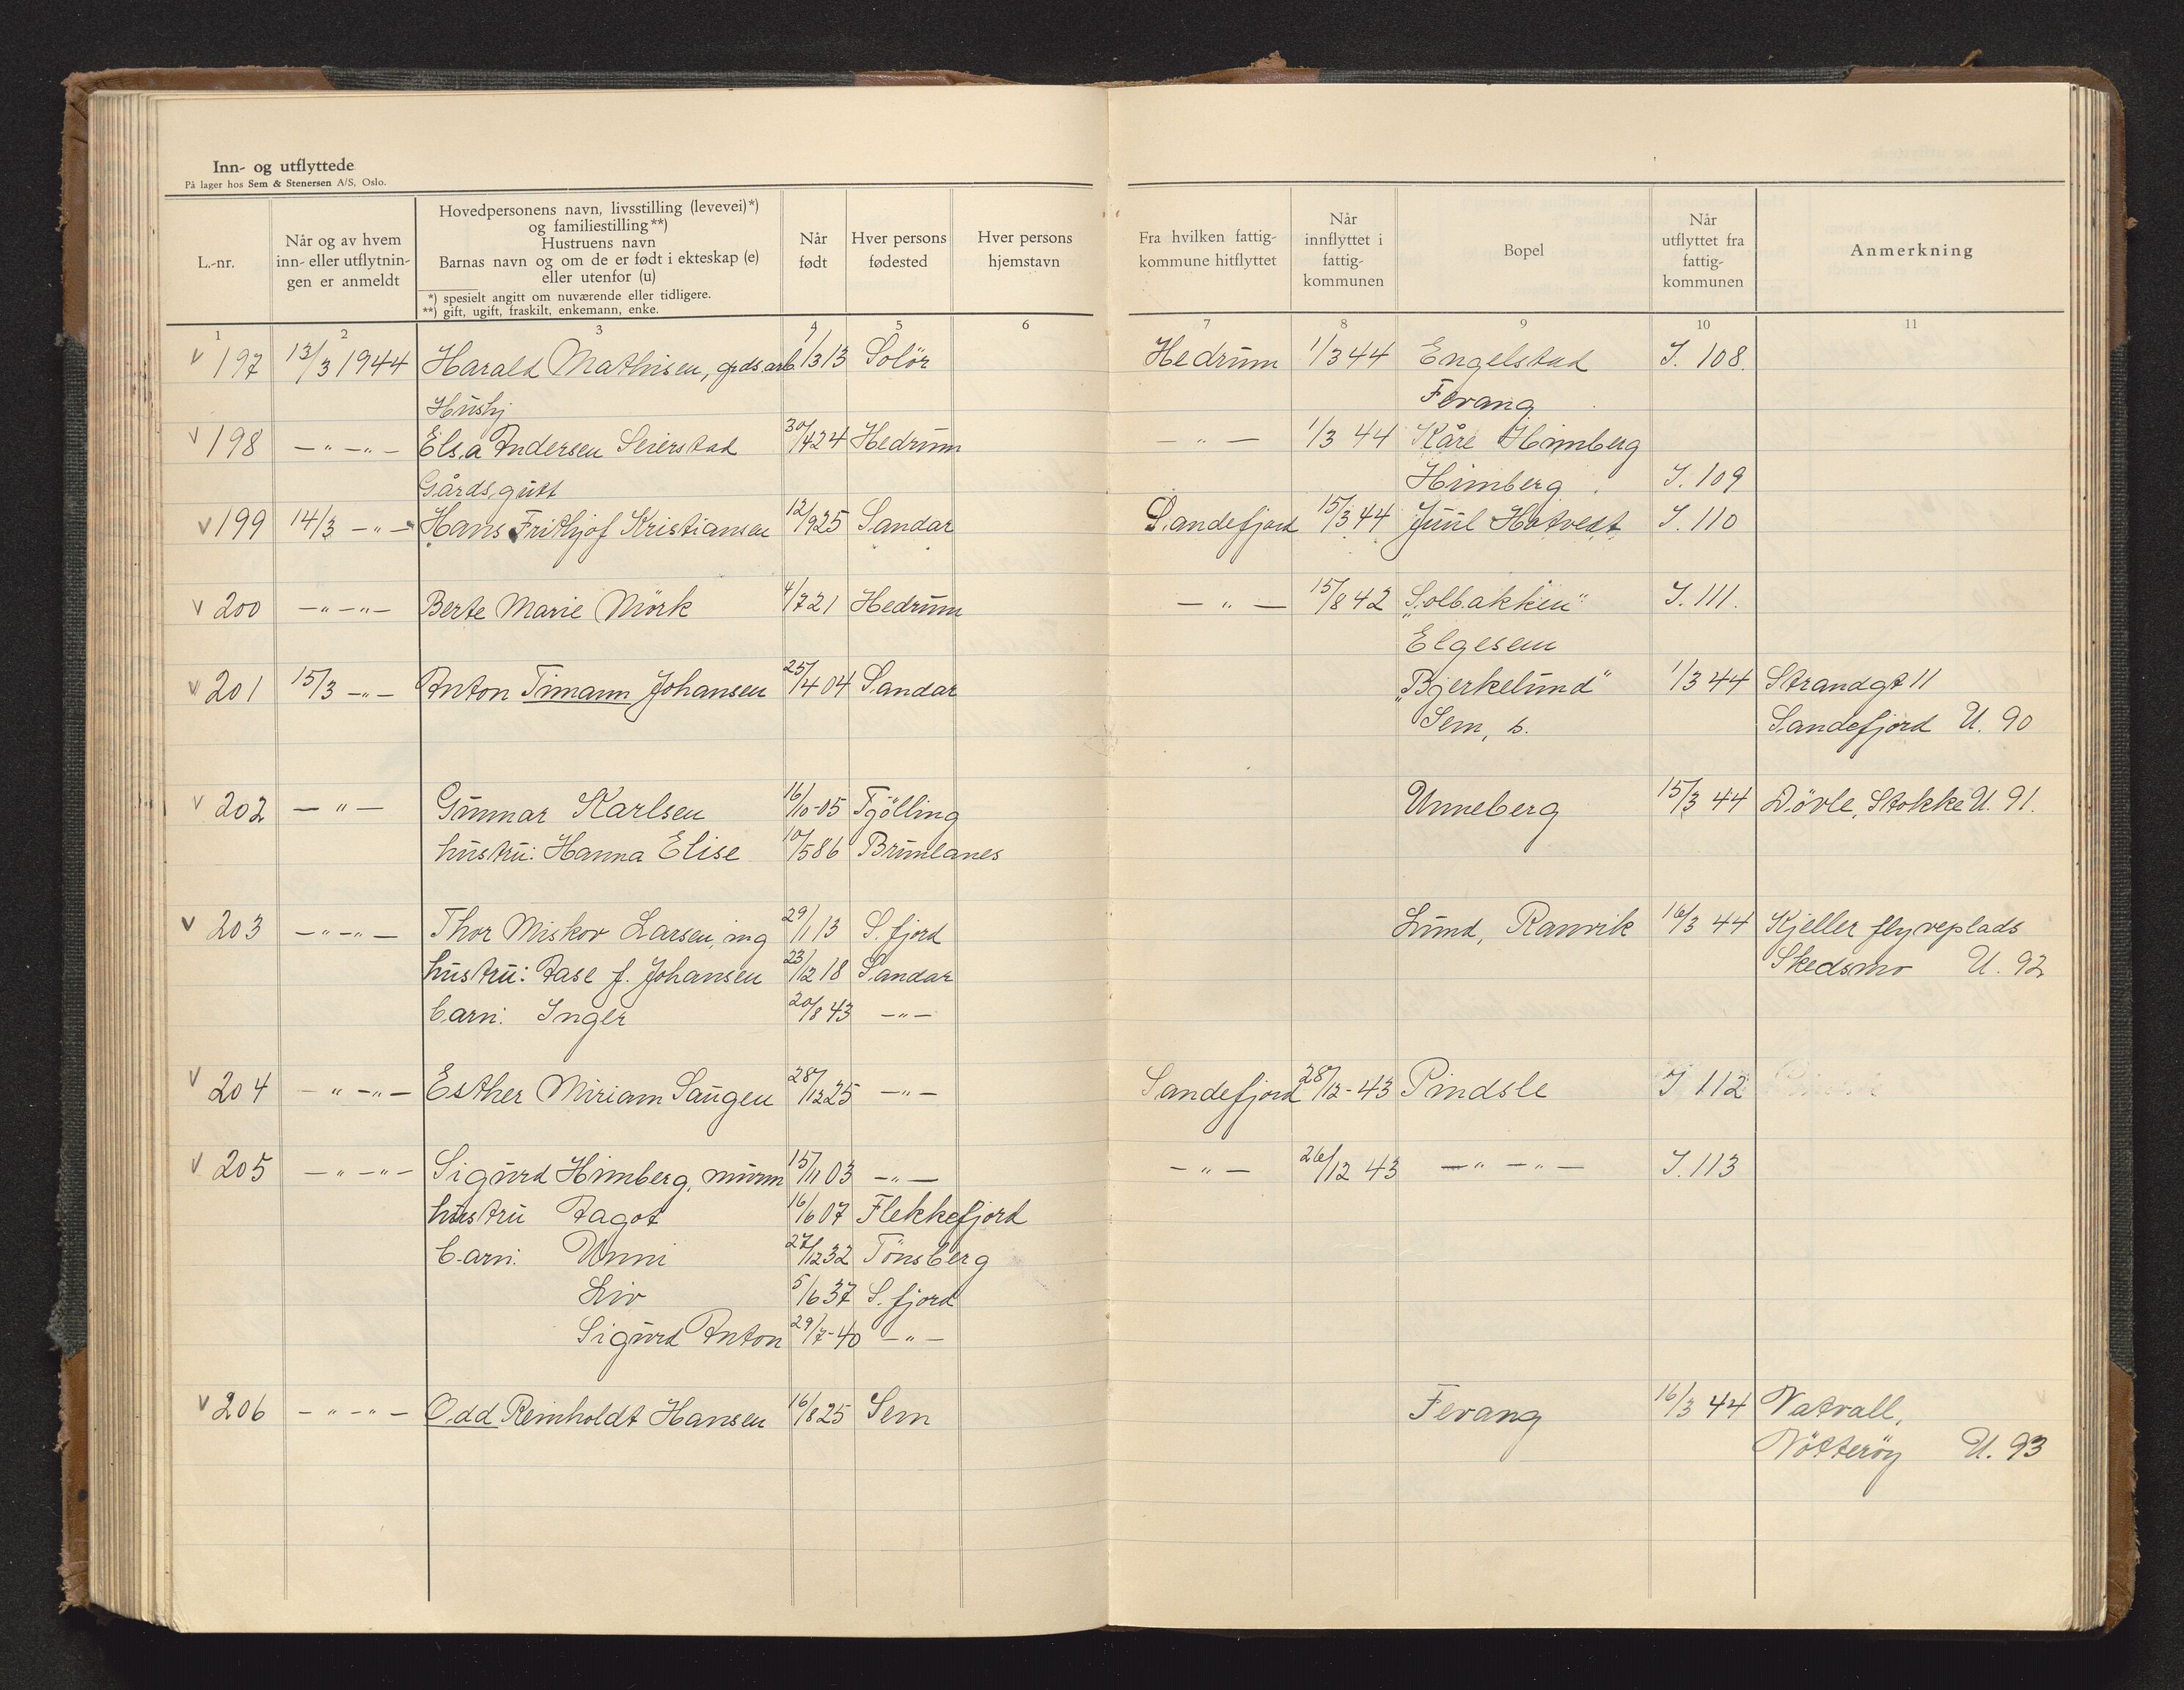 Inn- og utflyttede
På lager hos Sem & Stenersen A/S, Oslo.
L.-nr.
Når og av hvem
inn- eller utflytnin-
gen er anmeldt
Hovedpersonens navn, livsstilling (levevei)*)
og familiestilling**)
Hustruens navn
Barnas navn og om de er født i ekteskap (e)
eller utenfor (u)
*) spesielt angitt om nuværende eller tidligere.
**) gift, ugift, fraskilt, enkemann, enke.
Når
født
Hver persons
fødested
Hver persons
hjemstavn
Fra hvilken fattig-
kommune hitflyttet
Når
innflyttet i
fattig-
kommunen
Bopel
Når
utflyttet fra
fattig-
kommunen
Anmerkning
1 2 3 4 5 6 7 8 9 10 11
v 197 13/3 1944 Harald Mathisen, grds.arb. 1/3 13 Solör Hedrum 1/3 44 Engelstad I. 108.
Hushj Ferang
v 198 —"—"— Elsa Andersen Seierstad 30/4 24 Hedrum —"— 1/3 44 Kåre Himberg
Gårdsgutt Himberg I. 109
v 199 14/3 —"— Hans Frithjof Kristiansen 12/9 25 Sandar Sandefjord 15/3 44 Juul Hotvedt I. 110
v 200 —"—"— Berte Marie Mörk 4/7 21 Hedrum —"— 15/8 42 "Solbakken" I. 111.
Elgesem
v 201 15/3 —"— Anton Timann Johansen 25/4 04 Sandar "Bjerkelund" 1/3 44 Strandgt 11
Sem, s. Sandefjord U. 90
v 202 —"— Gunnar Karlsen 16/10-05 Tjölling Unneberg 15/3 44 Dövle, Stokke U. 91.
hustru: Hanna Elise 10/5 86 Brunlanes
v 203 —"—"— Thor Miskov Larsen, ing 29/1 13 S.fjord Lund, Ranvik 16/3 44 Kjeller flyveplads
hustru: Aase f. Johansen 23/12 18 Sandar Skedsmo U. 92
barn: Inger 20/8 43 —"—
v 204 —"—"— Esther Miriam Saugen 28/12 25 —"— Sandefjord 28/12-43 Pindsle I 112
v 205 —"—"— Sigurd Himberg, murm 15/11 03 —"— —"— 26/12 43 —"—"— I. 113
hustru Aagot 16/6 07 Flekkefjord
barn: Unni 27/12 32 Tönsberg
Liv 5/6 37 S.fjord
Sigurd Anton 29/7-40 —"—
v 206 —"—"— Odd Reinholdt Hansen 16/8 25 Sem Ferang 16/3 44 Vatvall,
Nötteröy U. 93